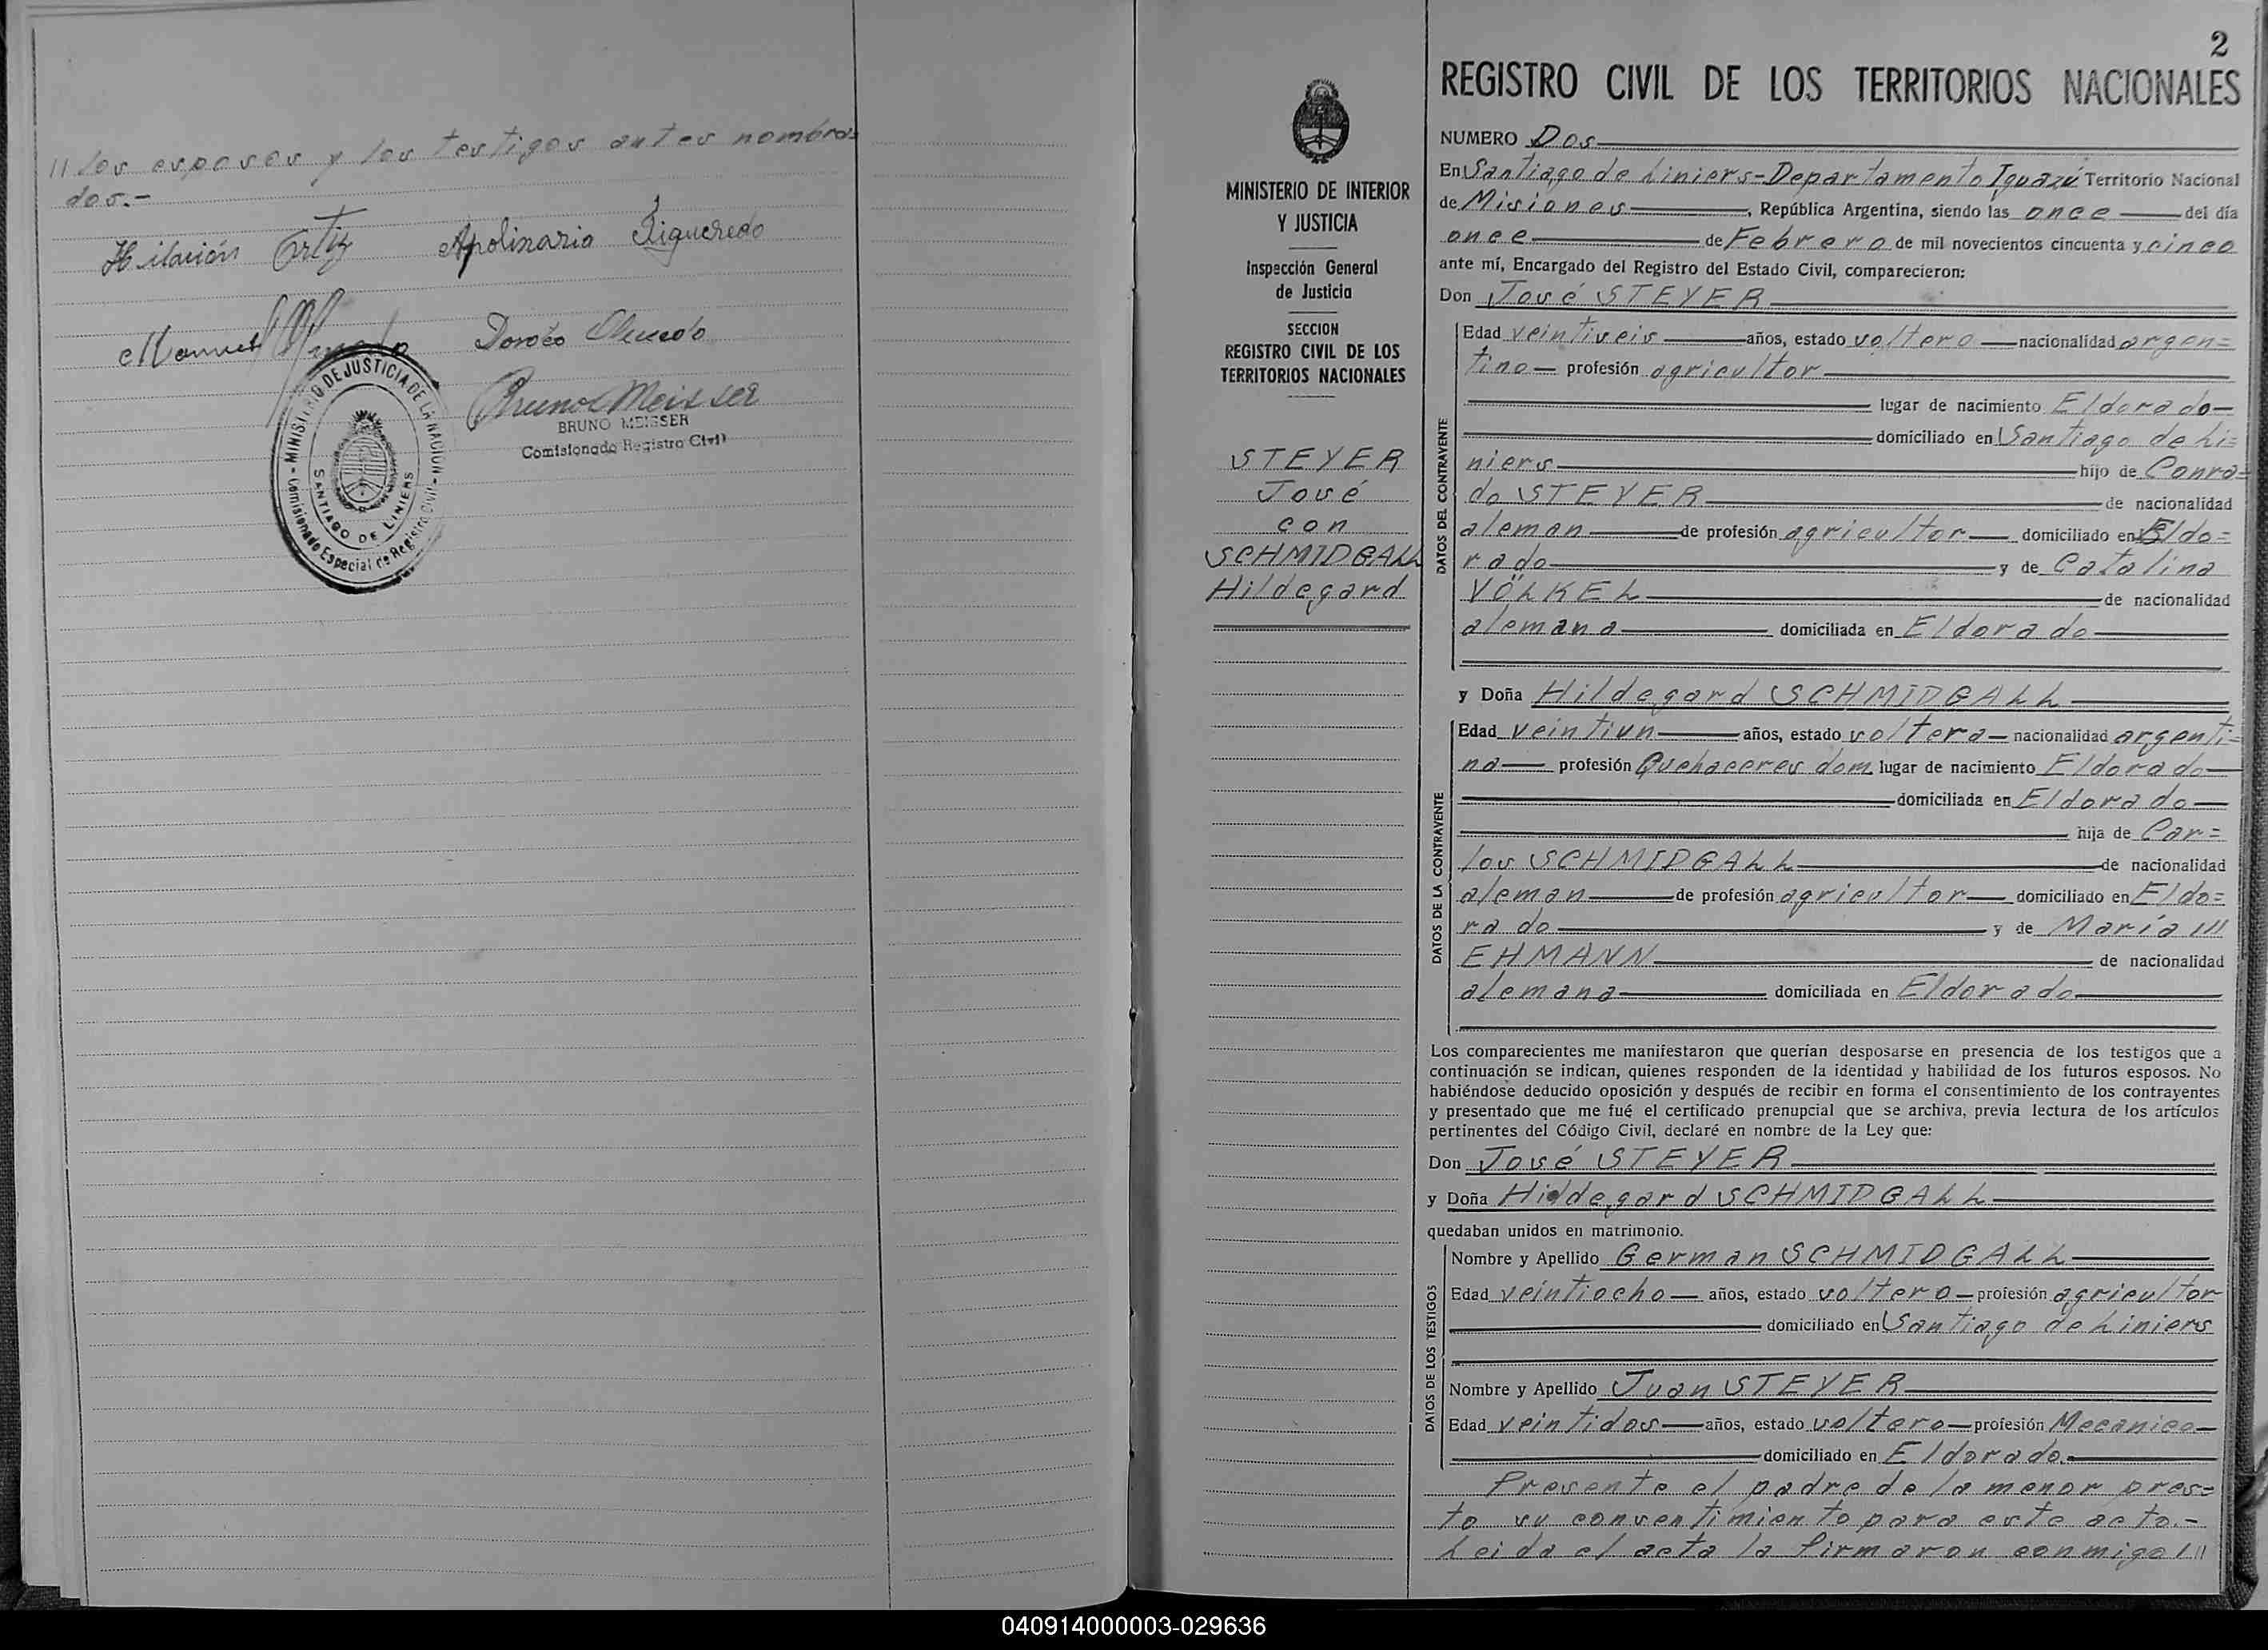 // los esposos y los testigos antes nombra=
dos.-
Hilarión Ortiz Apolinario Figueredo
Manuel Doroteo Olmedo
Bruno Meisser
BRUNO MEISSER
Comisionado Registro Civil
MINISTERIO DE JUSTICIA DE LA NACION - Comisionado Especial de Registro Civil -
SANTIAGO DE LINIERS
2
MINISTERIO DE INTERIOR
Y JUSTICIA
Inspección General
de Justicia
SECCION
REGISTRO CIVIL DE LOS
TERRITORIOS NACIONALES
STEYER
José
con
SCHMIDGALL
Hildegard
REGISTRO CIVIL DE LOS TERRITORIOS NACIONALES
NUMERO Dos
En Santiago de Liniers-Departamento Iguazú Territorio Nacional
de Misiones, República Argentina, siendo las once del día
once de Febrero de mil novecientos cincuenta y cinco
ante mí, Encargado del Registro del Estado Civil, comparecieron:
Don José STEYER
DATOS DEL CONTRAYENTE
Edad veintiseis años, estado soltero nacionalidad argen=
tino profesión agricultor
lugar de nacimiento Eldorado
domiciliado en Santiago de Li=
niers hijo de Conra=
do STEYER de nacionalidad
aleman de profesión agricultor domiciliado en Eldo=
rado y de Catalina
VÖLKEL de nacionalidad
alemana domiciliada en Eldorado
y Doña Hildegard SCHMIDGALL
DATOS DE LA CONTRAYENTE
Edad veintiun años, estado soltera nacionalidad argenti=
na profesión Quehaceres dom. lugar de nacimiento Eldorado
domiciliada en Eldorado
hija de Car=
los SCHMIDGALL de nacionalidad
aleman de profesión agricultor domiciliado en Eldo=
rado y de María ///
EHMANN de nacionalidad
alemana domiciliada en Eldorado
Los comparecientes me manifestaron que querían desposarse en presencia de los testigos que a
continuación se indican, quienes responden de la identidad y habilidad de los futuros esposos. No
habiéndose deducido oposición y después de recibir en forma el consentimiento de los contrayentes
y presentado que me fué el certificado prenupcial que se archiva, previa lectura de los artículos
pertinentes del Código Civil, declaré en nombre de la Ley que:
Don José STEYER
y Doña Hildegard SCHMIDGALL
quedaban unidos en matrimonio.
DATOS DE LOS TESTIGOS
Nombre y Apellido German SCHMIDGALL
Edad veintiocho años, estado soltero profesión agricultor
domiciliado en Santiago de Liniers
Nombre y Apellido Juan STEYER
Edad veintidos años, estado soltero profesión Mecanico
domiciliado en Eldorado.
Presente el padre de la menor pres=
to su consentimiento para este acto.-
Leida el acta la firmaron conmigo ///
040914000003-029636